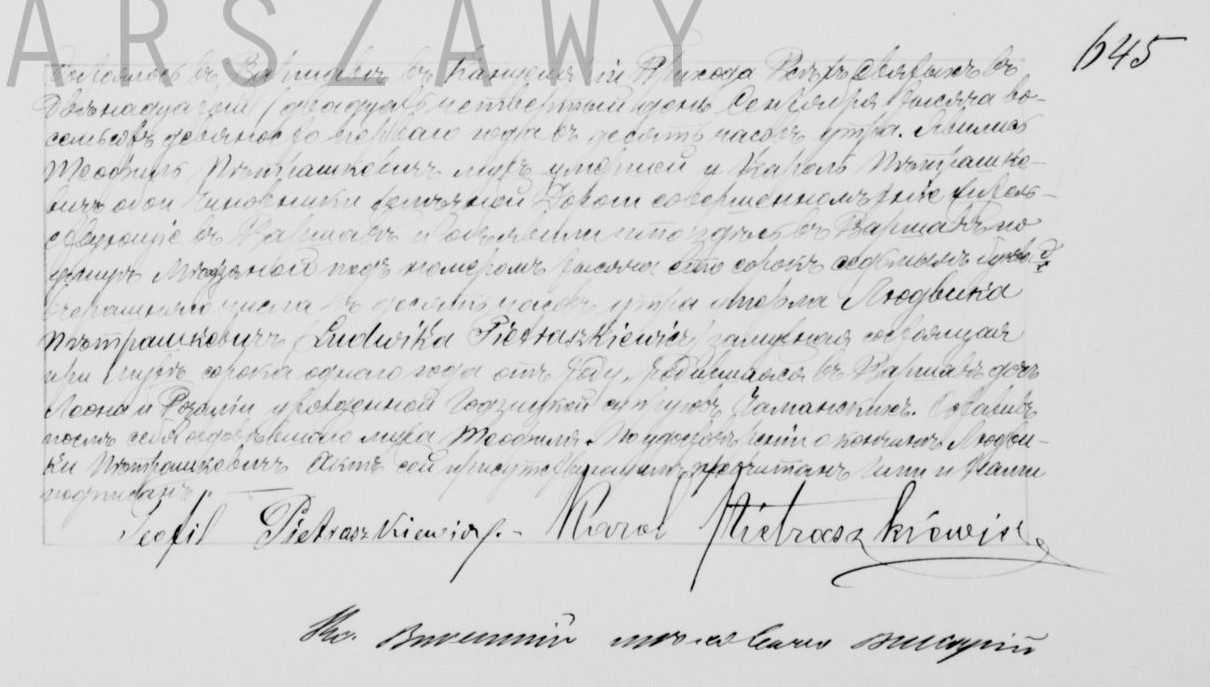 ARSZAWY
645
Состоялось въ Варшавѣ въ Канцеляріи Прихода Всѣхъ Святыхъ въ
Двѣнадцатый / двадцать четвертый день Сентября тысяча во-
семьсотъ девяносто перваго года въ десять часовъ утра. Явились
Теофиль Пѣтрашкевичъ мужъ умершей и Кароль Пѣтрашке-
вичъ оба Чиновники Дороги совершеннолѣтніе житель-
ствующіе въ Варшавѣ и объявили что здѣсь въ Варшавѣ по
улицѣ Мѣдзяной подъ номеромъ тысяча сто сорокъ седьмымъ
вчерашняго числа въ десять часовъ утра умерла Людвика
Пѣтрашкевичъ /Ludwika Pietraszkiewicz/ замужная состоящая
при мужѣ сорока одного года отъ роду, родившаяся въ Варшавѣ дочь
Леона и Розаліи урожденной супруговъ. Оставивъ
послѣ себя овдовѣвшаго мужа Теофиля. По удостовѣреніи о кончинѣ Людви-
ки Пѣтрашкевичъ Актъ сей присутствующимъ прочитанъ Ими и Нами
подписанъ. —
Teofil Pietraszkiewicz. – Karol Pietraszkiewicz